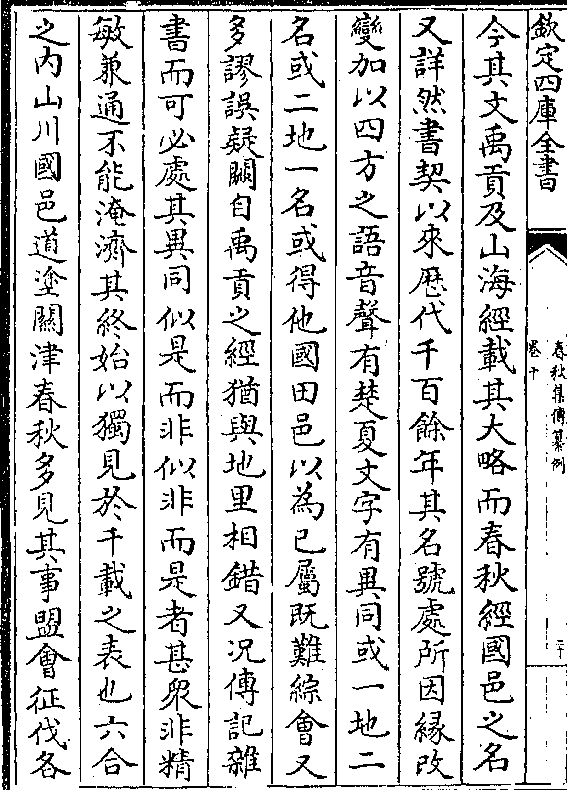 欽定四庫全書
春秋集傳纂例
卷十
二十
今其文禹貢及山海經載其大略而春秋經國邑之名
又詳然書契以來歷代千百餘年其名號處所因緣改
變加以四方之語音聲有楚夏文字有異同或一地二
名或二地一名或得他國田邑以為已屬既難綜會又
多謬誤疑闕自禹貢之經猶與地里相錯又况傳記雜
書而可必處其異同似是而非似非而是者甚衆非精
敏兼通不能淹濟其終始以獨見於千載之表也六合
之内山川國邑道塗關津春秋多見其事盟會征伐各